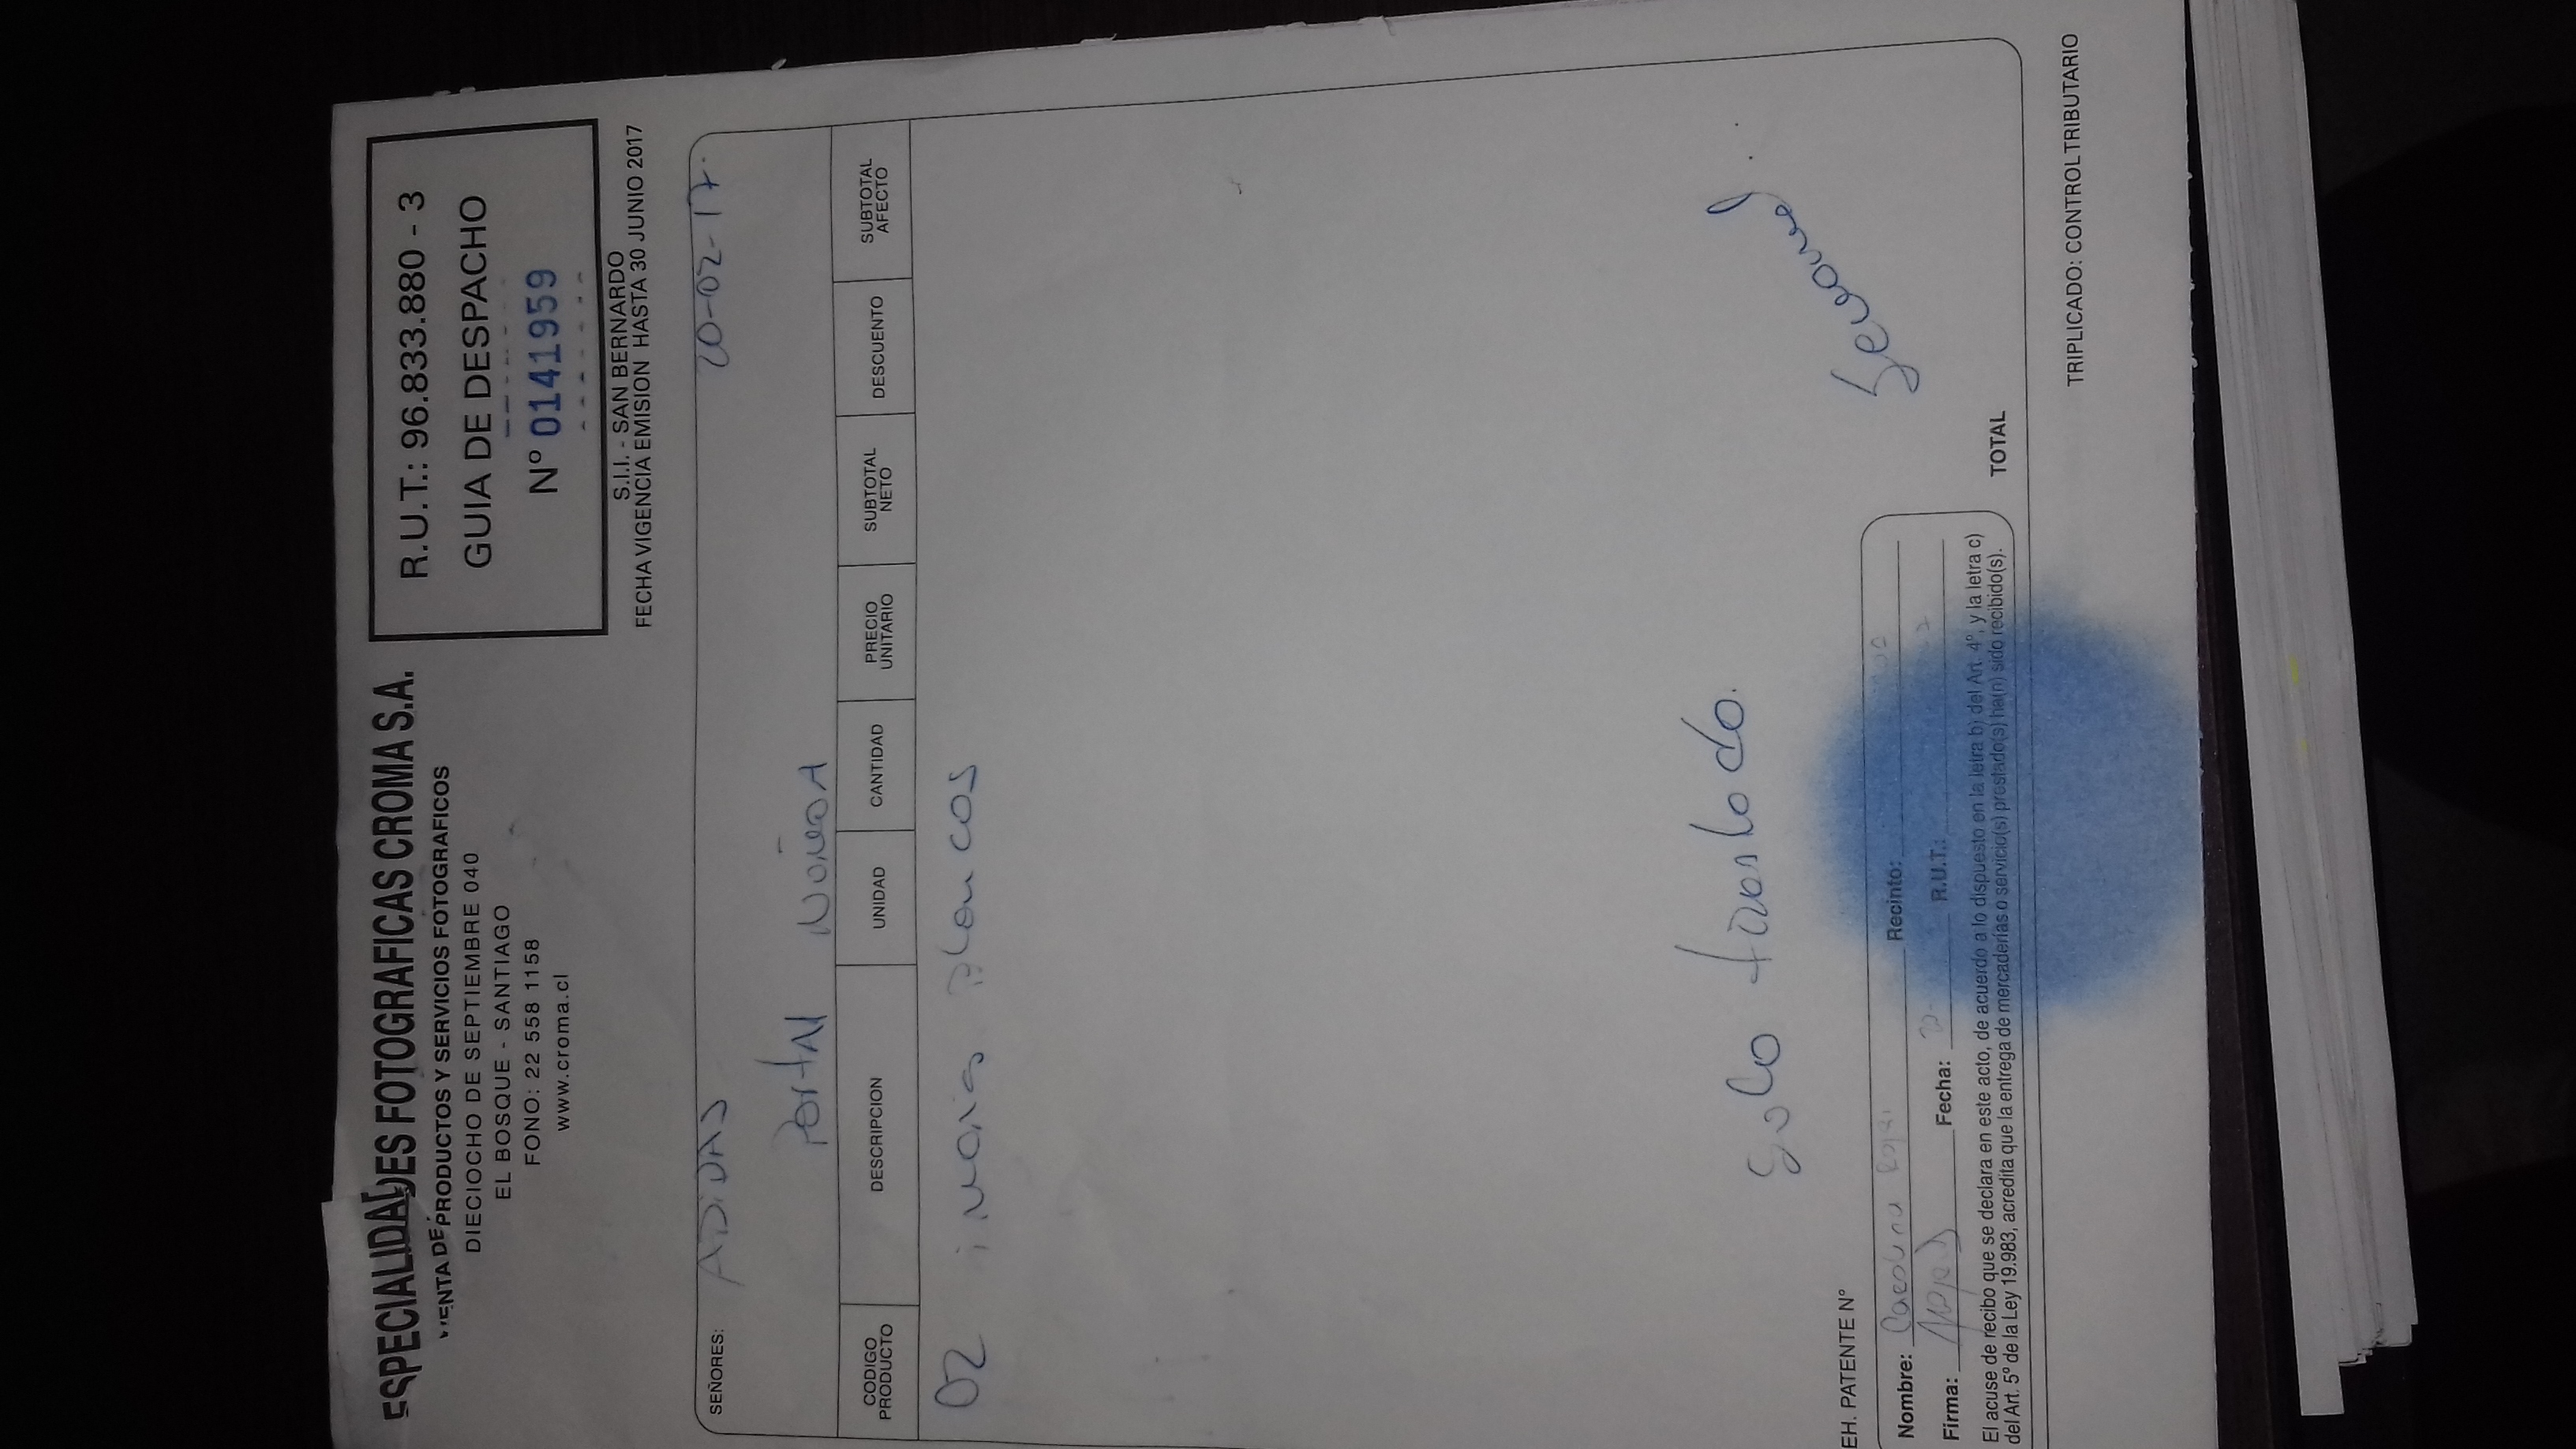 ESPECIALIDADES FOTOGRAFICAS CROMA S.A.
VENTA DE PRODUCTOS Y SERVICIOS FOTOGRAFICOS
DIECIOCHO DE SEPTIEMBRE 040
EL BOSQUE - SANTIAGO
FONO: 22 558 1158
www.croma.cl
R.U.T.: 96.833.880 - 3
GUIA DE DESPACHO
Nº 0141959
S.I.I. - SAN BERNARDO
FECHA VIGENCIA EMISION HASTA 30 JUNIO 2017
SEÑORES: ADIDAS 20-02-17.
Portal ÑUÑOA
CODIGO PRODUCTO DESCRIPCION UNIDAD CANTIDAD PRECIO UNITARIO SUBTOTAL NETO DESCUENTO SUBTOTAL AFECTO
02 blancos
Solo traslado.
EH. PATENTE N°
Nombre: Carolina Rojas Recinto:
Firma: Fecha: 20- R.U.T.:
El acuse de recibo que se declara en este acto, de acuerdo a lo dispuesto en la letra b) del Art. 4º, y la letra c)
del Art. 5º de la Ley 19.983, acredita que la entrega de mercaderías o servicio(s) prestado(s) ha(n) sido recibido(s).
TOTAL
TRIPLICADO: CONTROL TRIBUTARIO